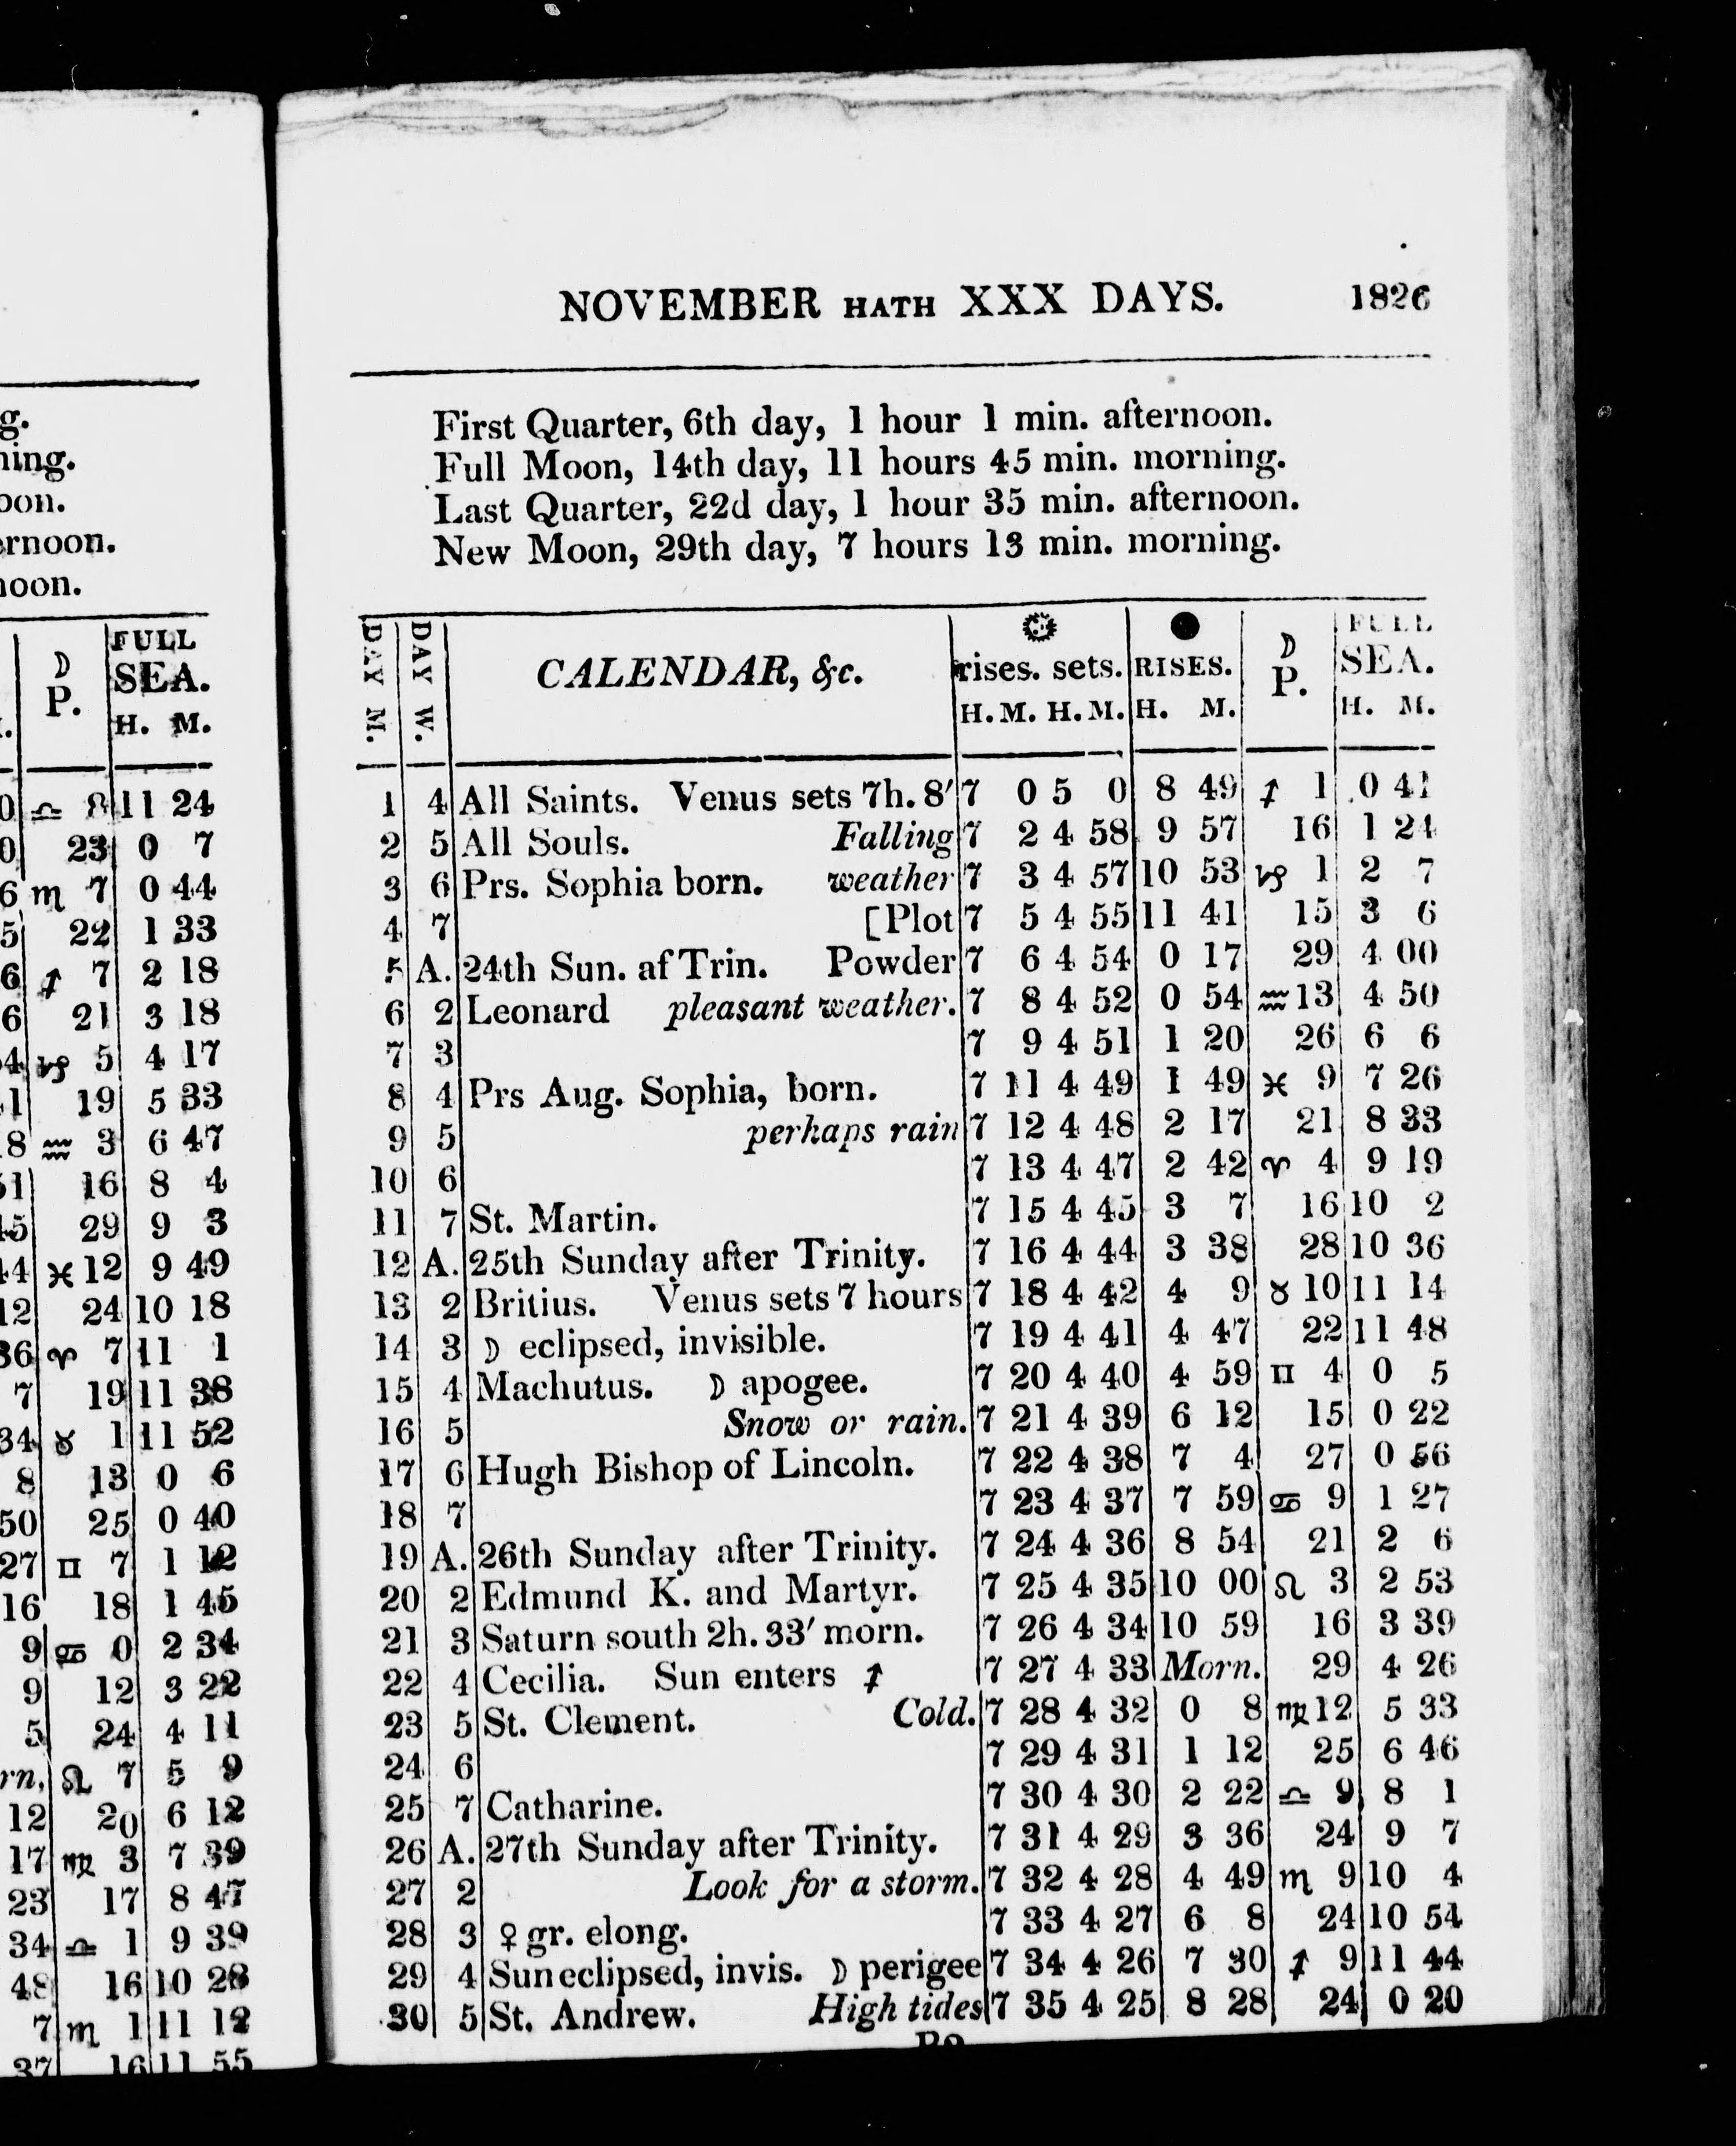 g.
ning.
oon.
ernoon.
noon.
☽ FULL
P. SEA.
H. M.
0 ♎ 8 11 24
0 23 0 7
6 ♏ 7 0 44
5 22 1 33
6 ♐ 7 2 18
6 21 3 18
4 ♑ 5 4 17
1 19 5 33
8 ♒ 3 6 47
51 16 8 4
45 29 9 3
44 ♓ 12 9 49
12 24 10 18
36 ♈ 7 11 1
7 19 11 38
34 ♉ 1 11 52
8 13 0 6
50 25 0 40
27 ♊ 7 1 12
16 18 1 45
9 ♋ 0 2 34
9 12 3 22
5 24 4 11
rn. ♌ 7 5 9
12 20 6 12
17 ♍ 3 7 39
23 17 8 47
34 ♎ 1 9 39
48 16 10 28
7 ♏ 1 11 12
37 16 11 55
NOVEMBER HATH XXX DAYS. 1826
First Quarter, 6th day, 1 hour 1 min. afternoon.
Full Moon, 14th day, 11 hours 45 min. morning.
Last Quarter, 22d day, 1 hour 35 min. afternoon.
New Moon, 29th day, 7 hours 13 min. morning.
DAY M. DAY W. CALENDAR, &c. rises. sets. RISES. ☽ P. FULL SEA.
H. M. H. M. H. M. H. M.
1 4 All Saints. Venus sets 7h. 8' 7 0 5 0 8 49 ♐ 1 0 41
2 5 All Souls. Falling 7 2 4 58 9 57 16 1 24
3 6 Prs. Sophia born. weather 7 3 4 57 10 53 ♑ 1 2 7
4 7 [Plot 7 5 4 55 11 41 15 3 6
5 A. 24th Sun. af Trin. Powder 7 6 4 54 0 17 29 4 00
6 2 Leonard pleasant weather. 7 8 4 52 0 54 ♒ 13 4 50
7 3 7 9 4 51 1 20 26 6 6
8 4 Prs Aug. Sophia, born. 7 11 4 49 1 49 ♓ 9 7 26
9 5 perhaps rain 7 12 4 48 2 17 21 8 33
10 6 7 13 4 47 2 42 ♈ 4 9 19
11 7 St. Martin. 7 15 4 45 3 7 16 10 2
12 A. 25th Sunday after Trinity. 7 16 4 44 3 38 28 10 36
13 2 Britius. Venus sets 7 hours 7 18 4 42 4 9 ♉ 10 11 14
14 3 ☽ eclipsed, invisible. 7 19 4 41 4 47 22 11 48
15 4 Machutus. ☽ apogee. 7 20 4 40 4 59 ♊ 4 0 5
16 5 Snow or rain. 7 21 4 39 6 12 15 0 22
17 6 Hugh Bishop of Lincoln. 7 22 4 38 7 4 27 0 56
18 7 7 23 4 37 7 59 ♋ 9 1 27
19 A. 26th Sunday after Trinity. 7 24 4 36 8 54 21 2 6
20 2 Edmund K. and Martyr. 7 25 4 35 10 00 ♌ 3 2 53
21 3 Saturn south 2h. 33' morn. 7 26 4 34 10 59 16 3 39
22 4 Cecilia. Sun enters ♐ 7 27 4 33 Morn. 29 4 26
23 5 St. Clement. Cold. 7 28 4 32 0 8 ♍ 12 5 33
24 6 7 29 4 31 1 12 25 6 46
25 7 Catharine. 7 30 4 30 2 22 ♎ 9 8 1
26 A. 27th Sunday after Trinity. 7 31 4 29 3 36 24 9 7
27 2 Look for a storm. 7 32 4 28 4 49 ♏ 9 10 4
28 3 ♀ gr. elong. 7 33 4 27 6 8 24 10 54
29 4 Sun eclipsed, invis. ☽ perigee 7 34 4 26 7 30 ♐ 9 11 44
30 5 St. Andrew. High tides 7 35 4 25 8 28 24 0 20